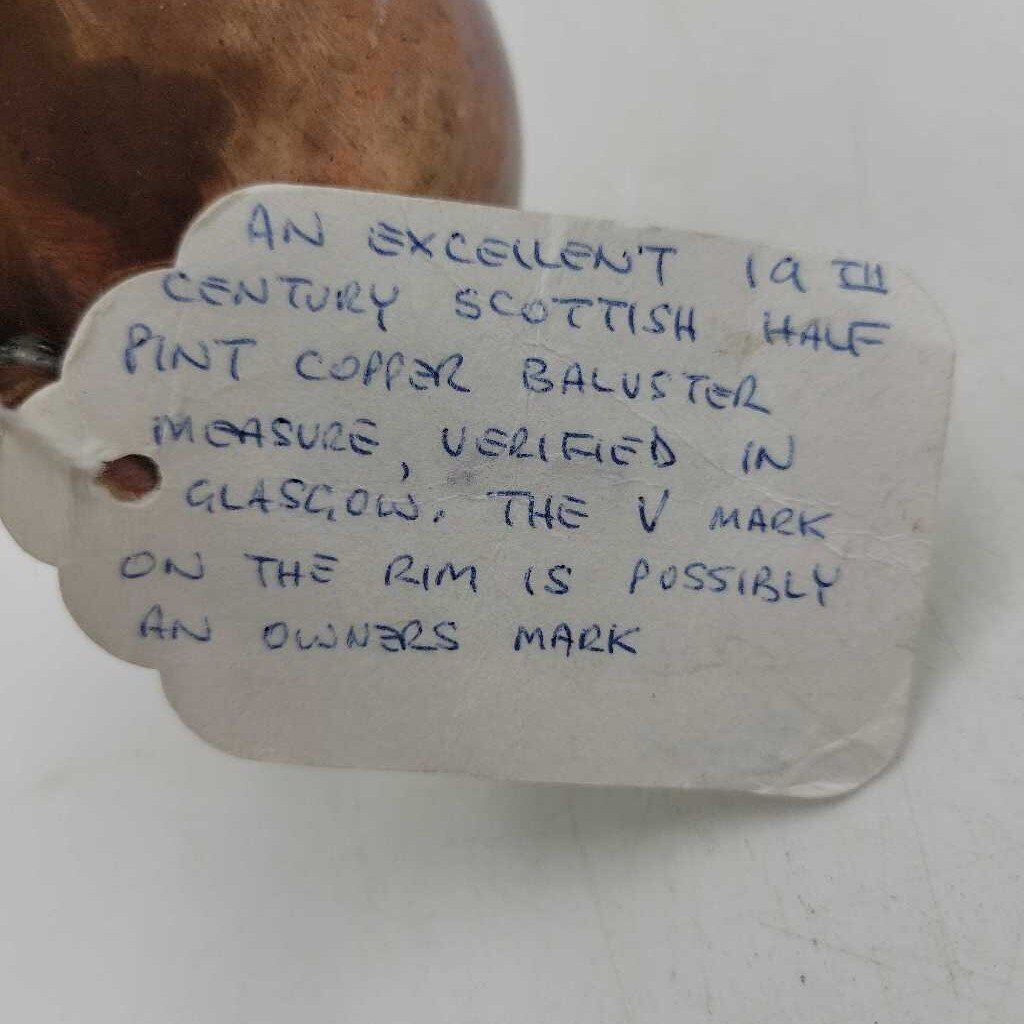 AN EXCELLENT 19TH
CENTURY SCOTTISH HALF
PINT COPPER BALUSTER
MEASURE, VERIFIED IN
GLASGOW. THE V MARK
ON THE RIM IS POSSIBLY
AN OWNERS MARK